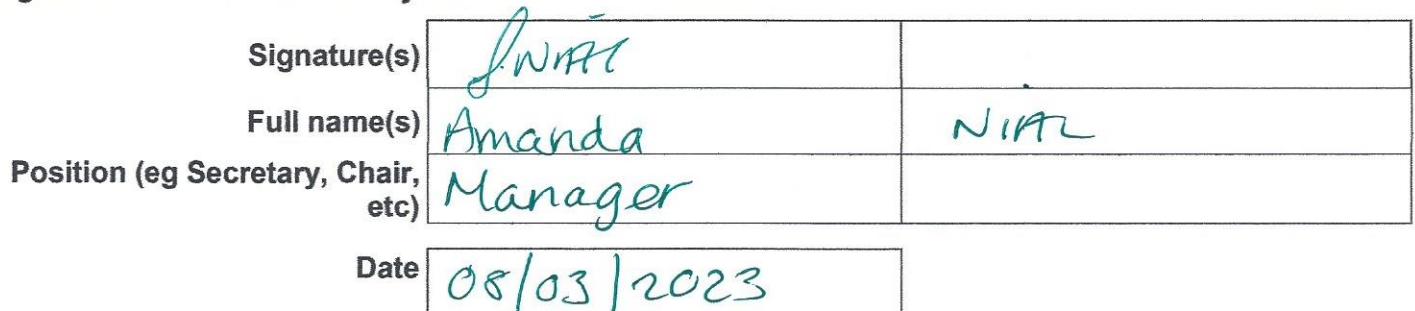 Signature(s)
Full name(s) Amanda NIAL
Position (eg Secretary, Chair,
etc) Manager
Date 08/03/2023